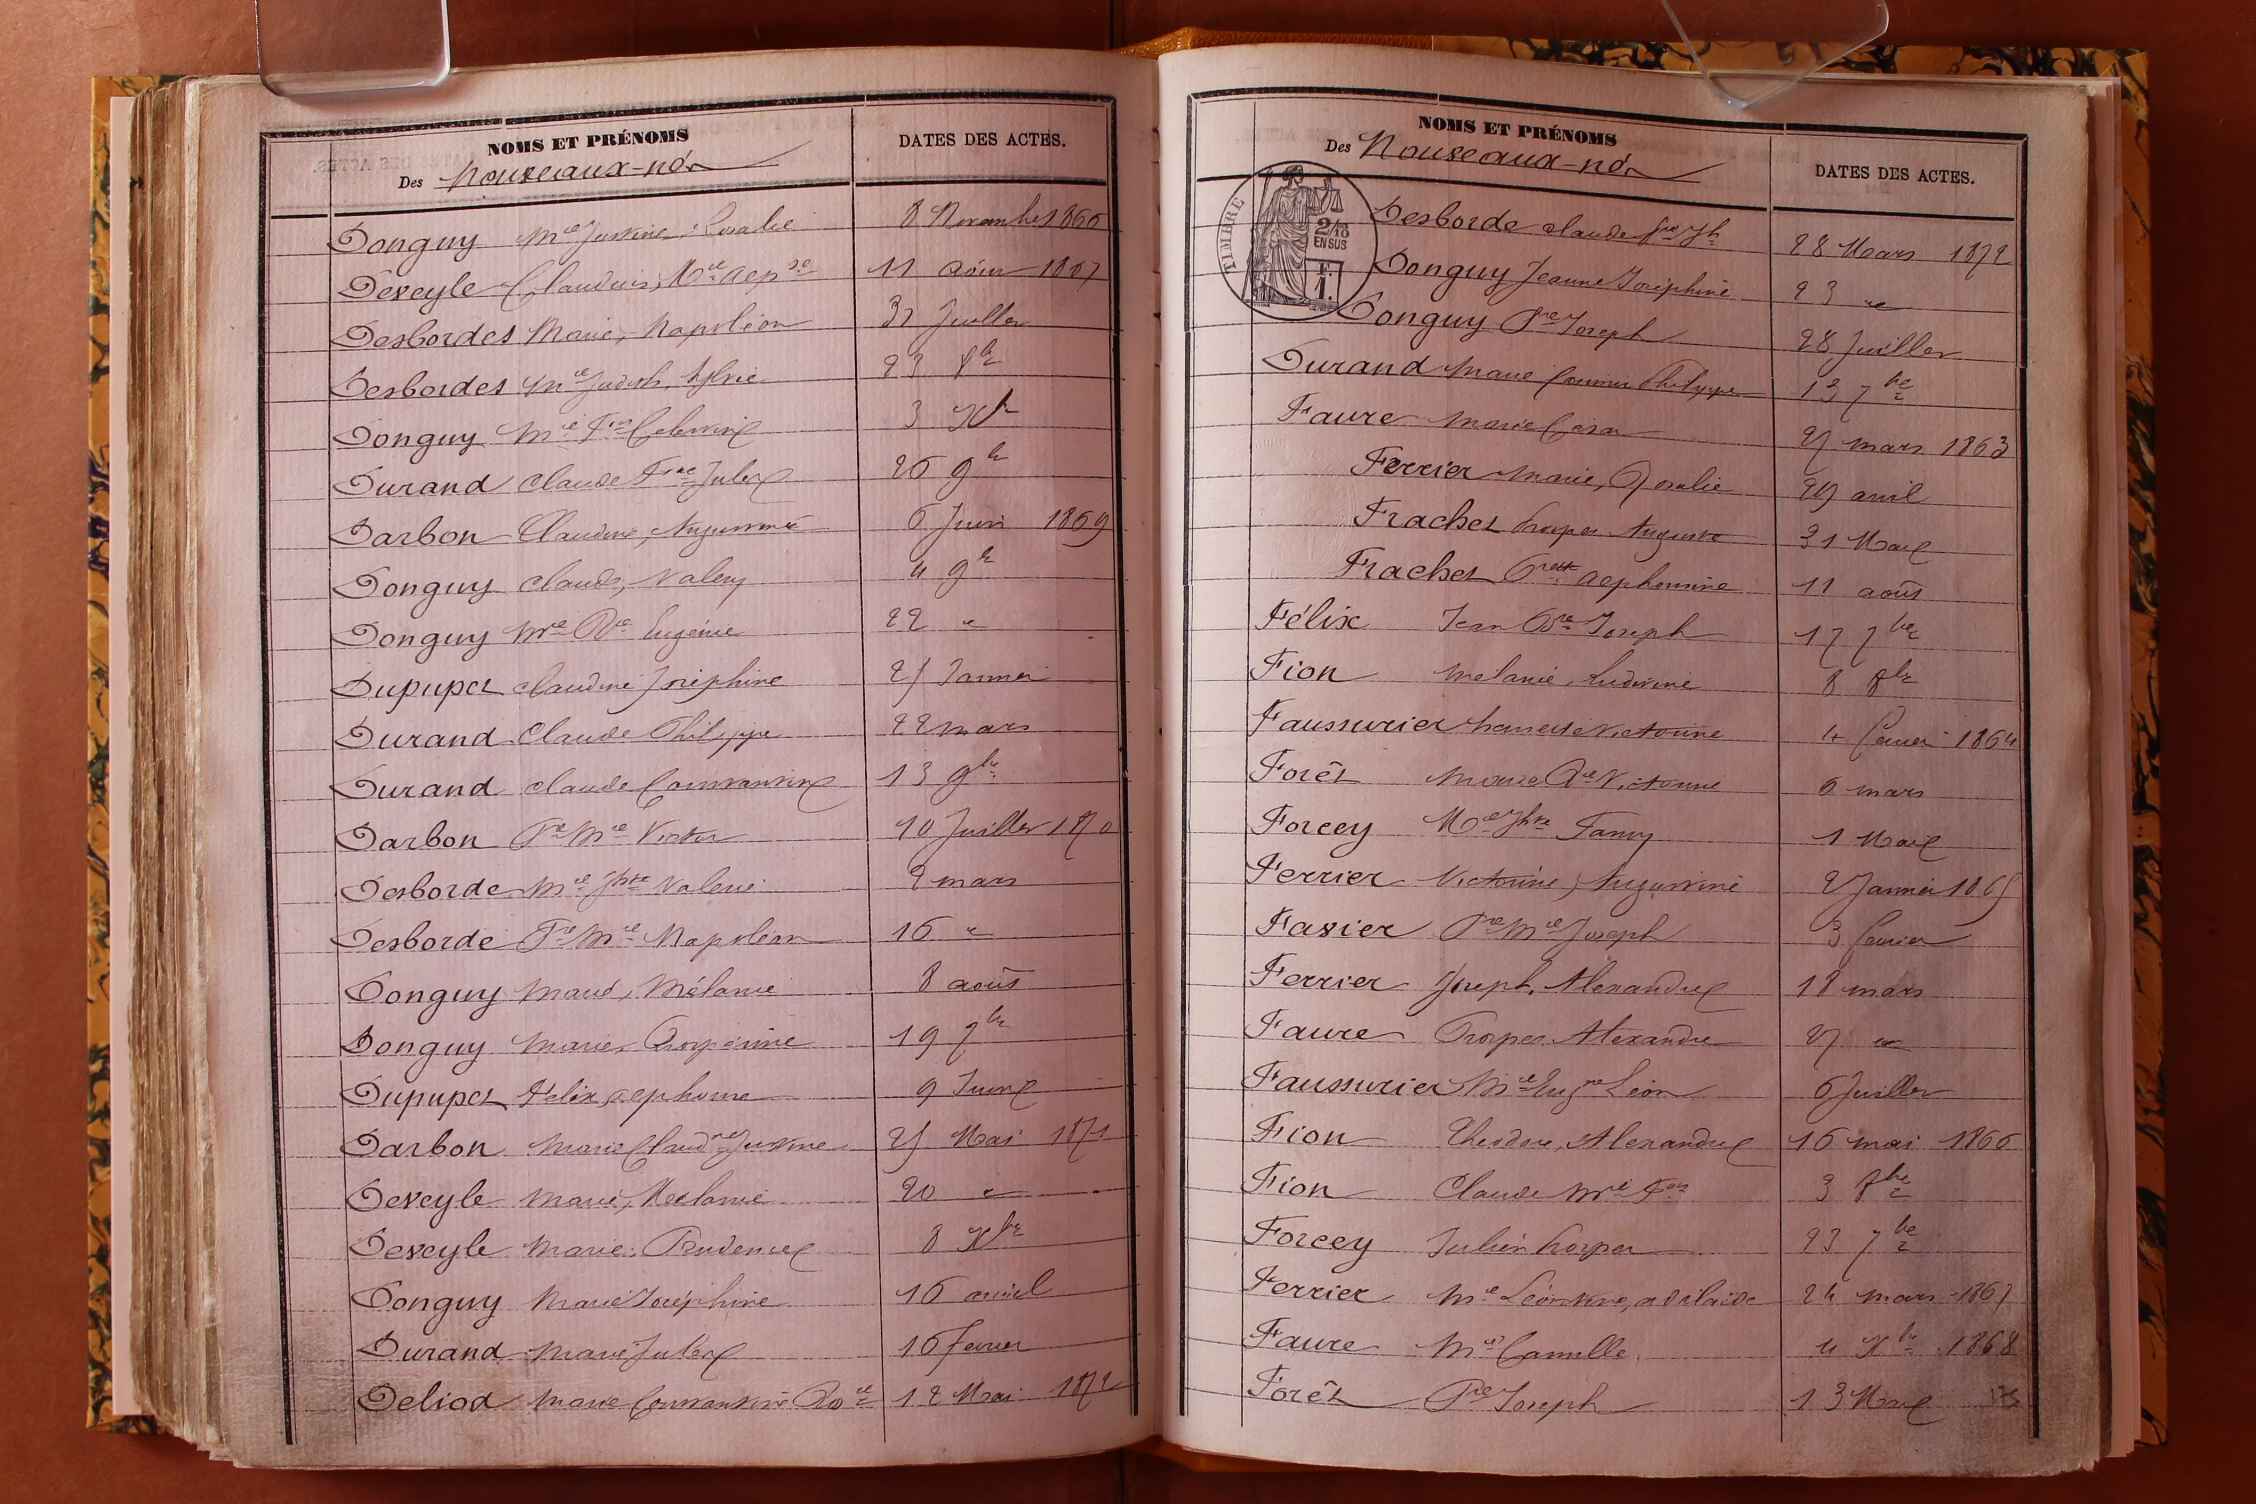 NOMS ET PRÉNOMS
Des Nouveaux-nés
DATES DES ACTES.
Donguy Mie Justine, Rosalie 8 Novembre 1866
Deveyle Claudius, Mie 11 août 1867
Desbordes Marie, Napoléon 31 Juillet
Desbordes Mie Judith, Sylvie 23 8bre
Donguy Mie Célestine 3 Xbre
Durand Claude Jules 26 9bre
Darbon Claudine, Augustine 6 Juin 1869
Donguy Claude, Valery 4 9bre
Donguy Mie Rie Eugénie 22 "
Dupupet Claudine Joséphine 25 Janvier
Durand Claude Philippe 22 mars
Durand Claude Constantin 13 9bre
Darbon Pre Mie Victor 10 Juillet 1870
Desborde Mie Jphte Valerie 2 mars
Desborde Pre Mie Napoléon 16 "
Donguy Marie, Mélanie 8 août
Donguy Marie, Prosperine 19 7bre
Dupupet Félix, alphonse 9 Juin
Darbon Marie Claudne Justine 25 Mai 1871
Deveyle Marie, Mélanie 20 "
Deveyle Marie, Prudence 8 Xbre
Donguy Marie Joséphine 16 avril
Durand Marie Jules 16 fevrier
Deliod Marie Constantine 12 Mai 1872
NOMS ET PRÉNOMS
Des Nouveaux-nés
DATES DES ACTES.
TIMBRE
2/10
EN SUS
F.
1.
Desborde Claude Jph 28 Mars 1872
Donguy Jeanne Joséphine 23 "
Donguy Pre Joseph 28 Juillet
Durand Marie Philippe 13 7bre
Faure Marie César 27 mars 1863
Ferrier Marie, Rosalie 29 avril
Frachet Prosper Auguste 31 Mai
Frachet alphonsine 11 août
Félix Jean Bte Joseph 17 7bre
Fion Mélanie, Ludivine 8 8bre
Faussurier Victorine 4 fevrier 1864
Forêt Marie Rie Victorine 6 mars
Forcey Mie Jphte Fanny 1 Mai
Ferrier Victorine, Augustine 2 Janvier 1865
Favier Pre Mie Joseph 3 fevrier
Ferrier Joseph, Alexandre 18 mars
Faure Prosper Alexandre 27 "
Faussurier Mie Eugne Léon 6 Juillet
Fion Théodore, Alexandre 16 mai 1866
Fion Claude Mie Fois 3 8bre
Forcey Julien Prosper 23 7bre
Ferrier Mie Léontine, adélaide 24 mars 1867
Faure Mie Camille 4 Xbre 1868
Forêt Pre Joseph 13 Mai